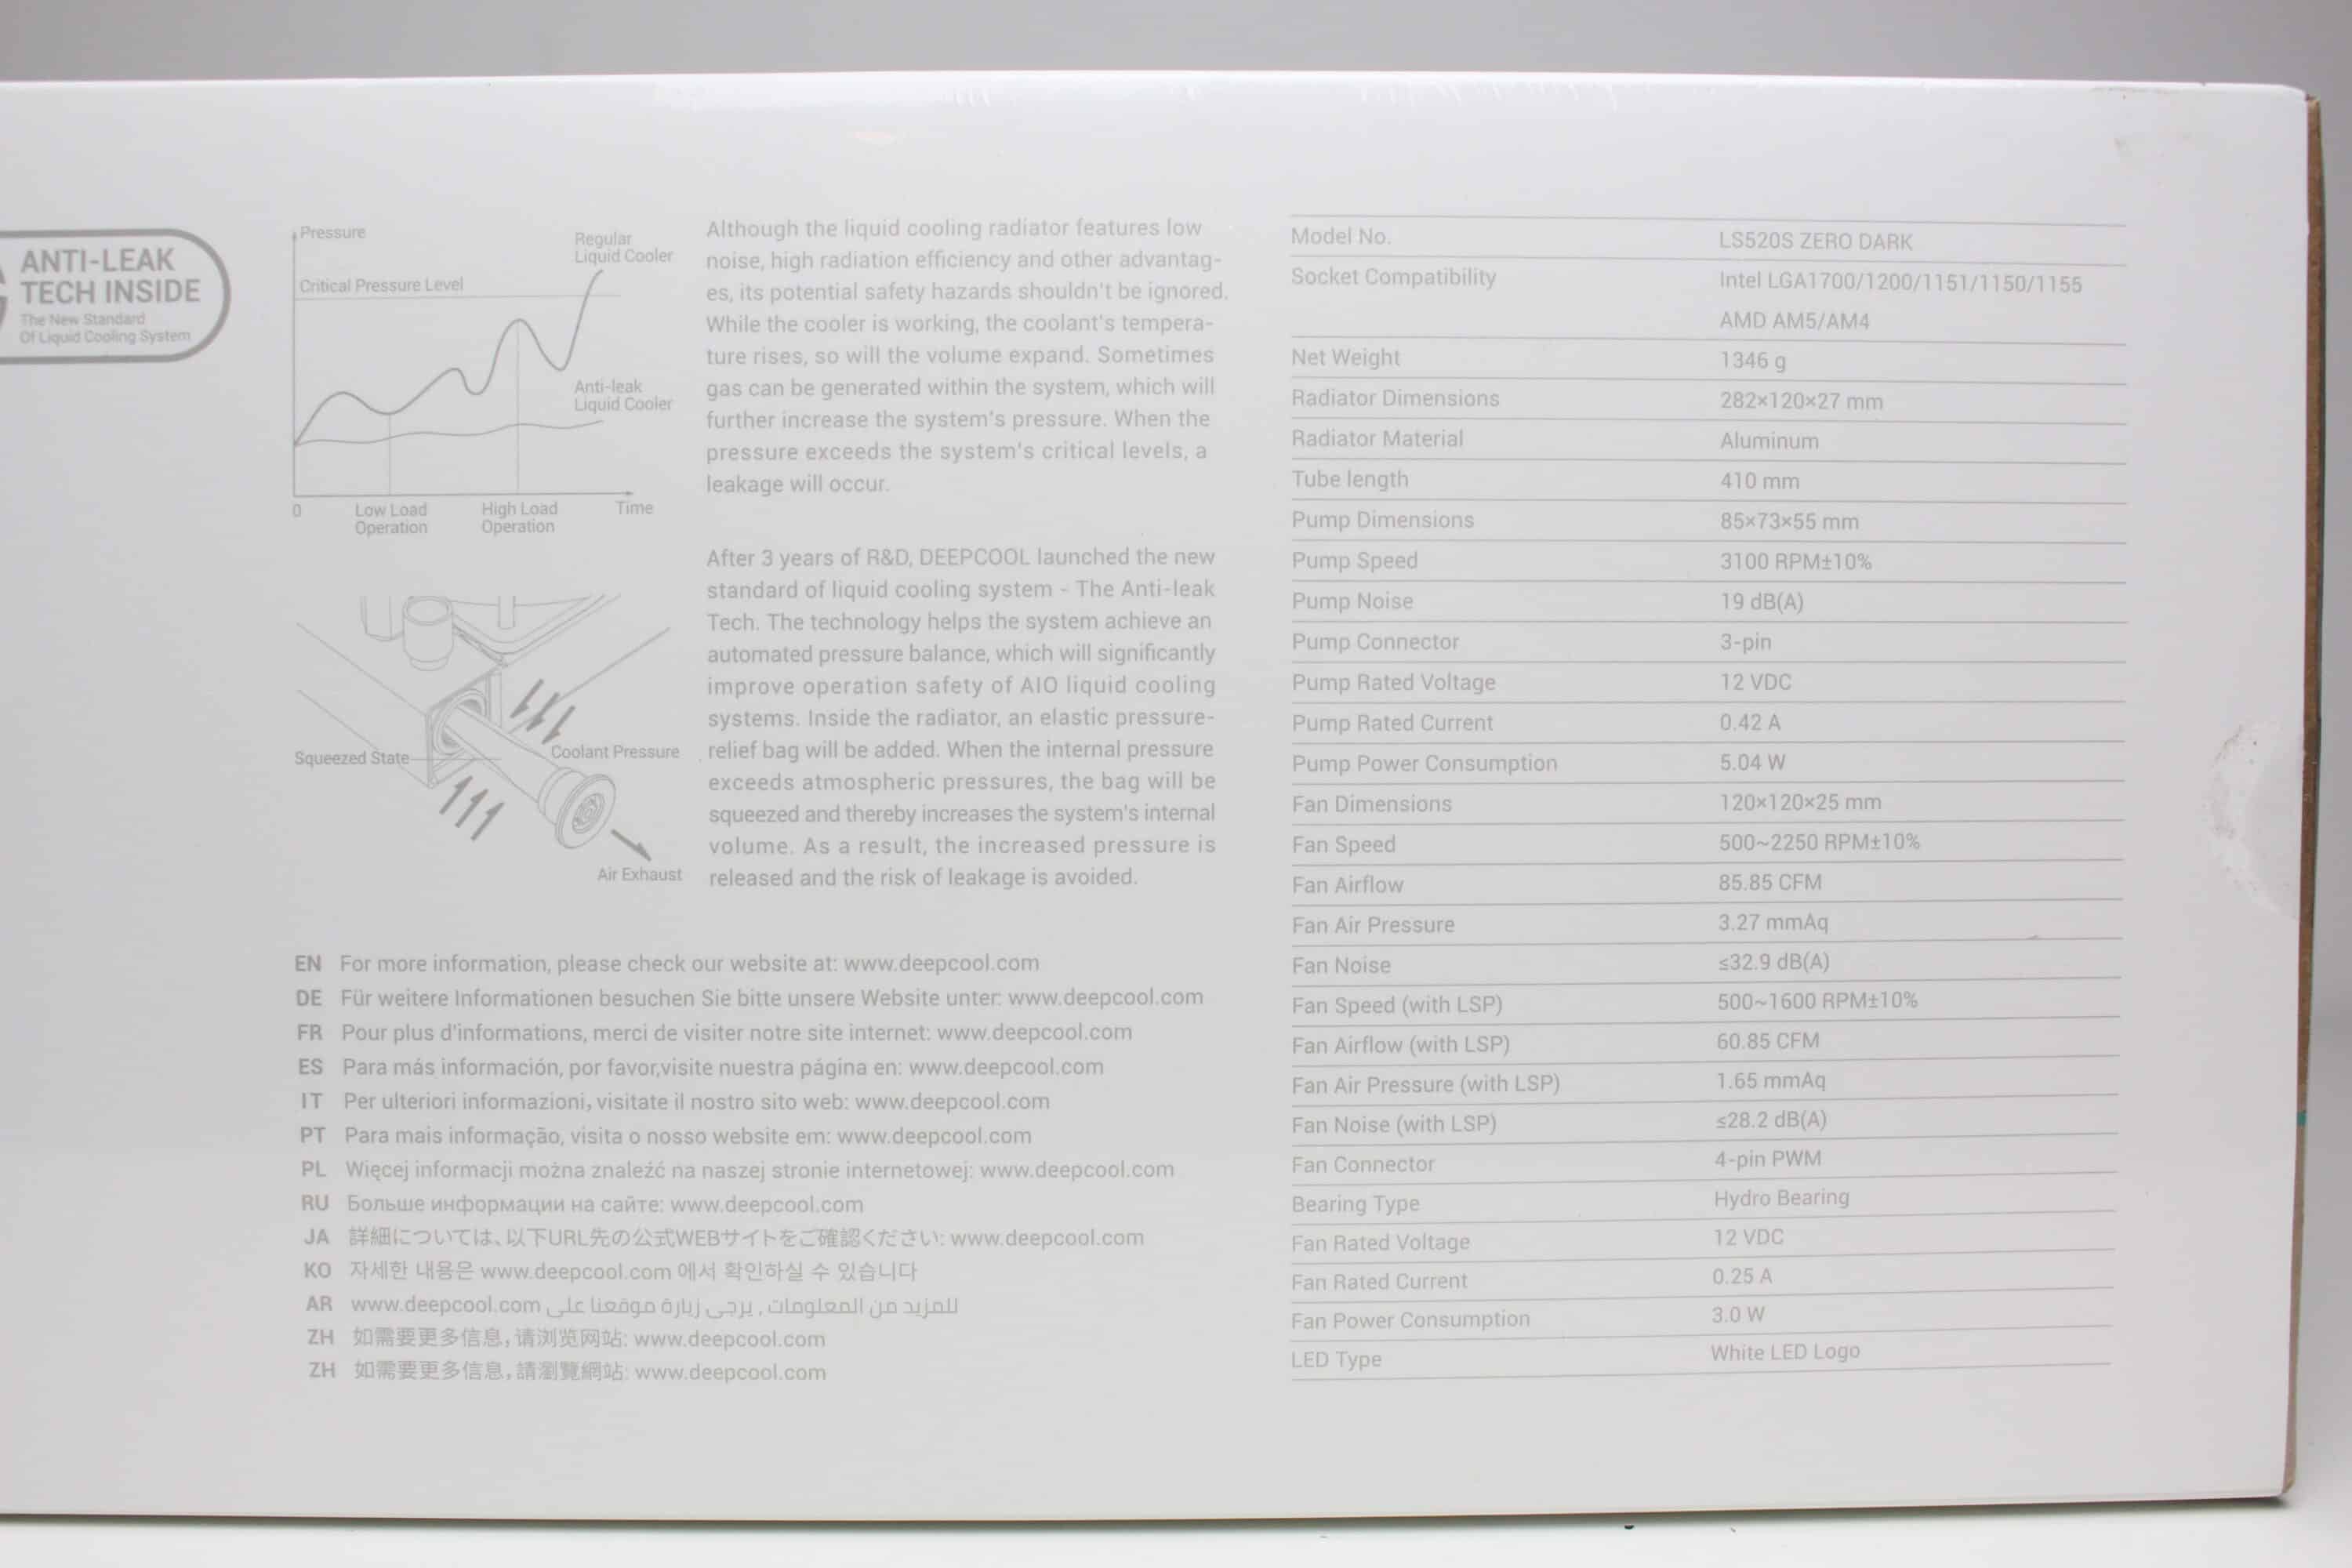 ANTI-LEAK
TECH INSIDE
The New Standard
Of Liquid Cooling System
Pressure
Regular
Liquid Cooler
Critical Pressure Level
Anti-leak
Liquid Cooler
0
Low Load
Operation
High Load
Operation
Time
Squeezed State
Coolant Pressure
Air Exhaust
Although the liquid cooling radiator features low
noise, high radiation efficiency and other advantag-
es, its potential safety hazards shouldn't be ignored.
While the cooler is working, the coolant's tempera-
ture rises, so will the volume expand. Sometimes
gas can be generated within the system, which will
further increase the system's pressure. When the
pressure exceeds the system's critical levels, a
leakage will occur.
After 3 years of R&D, DEEPCOOL launched the new
standard of liquid cooling system - The Anti-leak
Tech. The technology helps the system achieve an
automated pressure balance, which will significantly
improve operation safety of AIO liquid cooling
systems. Inside the radiator, an elastic pressure-
relief bag will be added. When the internal pressure
exceeds atmospheric pressures, the bag will be
squeezed and thereby increases the system's internal
volume. As a result, the increased pressure is
released and the risk of leakage is avoided.
EN For more information, please check our website at: www.deepcool.com
DE Für weitere Informationen besuchen Sie bitte unsere Website unter: www.deepcool.com
FR Pour plus d'informations, merci de visiter notre site internet: www.deepcool.com
ES Para más información, por favor,visite nuestra página en: www.deepcool.com
IT Per ulteriori informazioni, visitate il nostro sito web: www.deepcool.com
PT Para mais informação, visita o nosso website em: www.deepcool.com
PL Więcej informacji można znaleźć na naszej stronie internetowej: www.deepcool.com
RU Больше информации на сайте: www.deepcool.com
JA 詳細については、以下URL先の公式WEBサイトをご確認ください: www.deepcool.com
KO 자세한 내용은 www.deepcool.com 에서 확인하실 수 있습니다
AR www.deepcool.com للمزيد من المعلومات , يرجى زيارة موقعنا على
ZH 如需要更多信息,请浏览网站: www.deepcool.com
ZH 如需要更多信息,請瀏覽網站: www.deepcool.com
Model No. LS520S ZERO DARK
Socket Compatibility Intel LGA1700/1200/1151/1150/1155
AMD AM5/AM4
Net Weight 1346 g
Radiator Dimensions 282×120×27 mm
Radiator Material Aluminum
Tube length 410 mm
Pump Dimensions 85×73×55 mm
Pump Speed 3100 RPM±10%
Pump Noise 19 dB(A)
Pump Connector 3-pin
Pump Rated Voltage 12 VDC
Pump Rated Current 0.42 A
Pump Power Consumption 5.04 W
Fan Dimensions 120×120×25 mm
Fan Speed 500~2250 RPM±10%
Fan Airflow 85.85 CFM
Fan Air Pressure 3.27 mmAq
Fan Noise ≤32.9 dB(A)
Fan Speed (with LSP) 500~1600 RPM±10%
Fan Airflow (with LSP) 60.85 CFM
Fan Air Pressure (with LSP) 1.65 mmAq
Fan Noise (with LSP) ≤28.2 dB(A)
Fan Connector 4-pin PWM
Bearing Type Hydro Bearing
Fan Rated Voltage 12 VDC
Fan Rated Current 0.25 A
Fan Power Consumption 3.0 W
LED Type White LED Logo